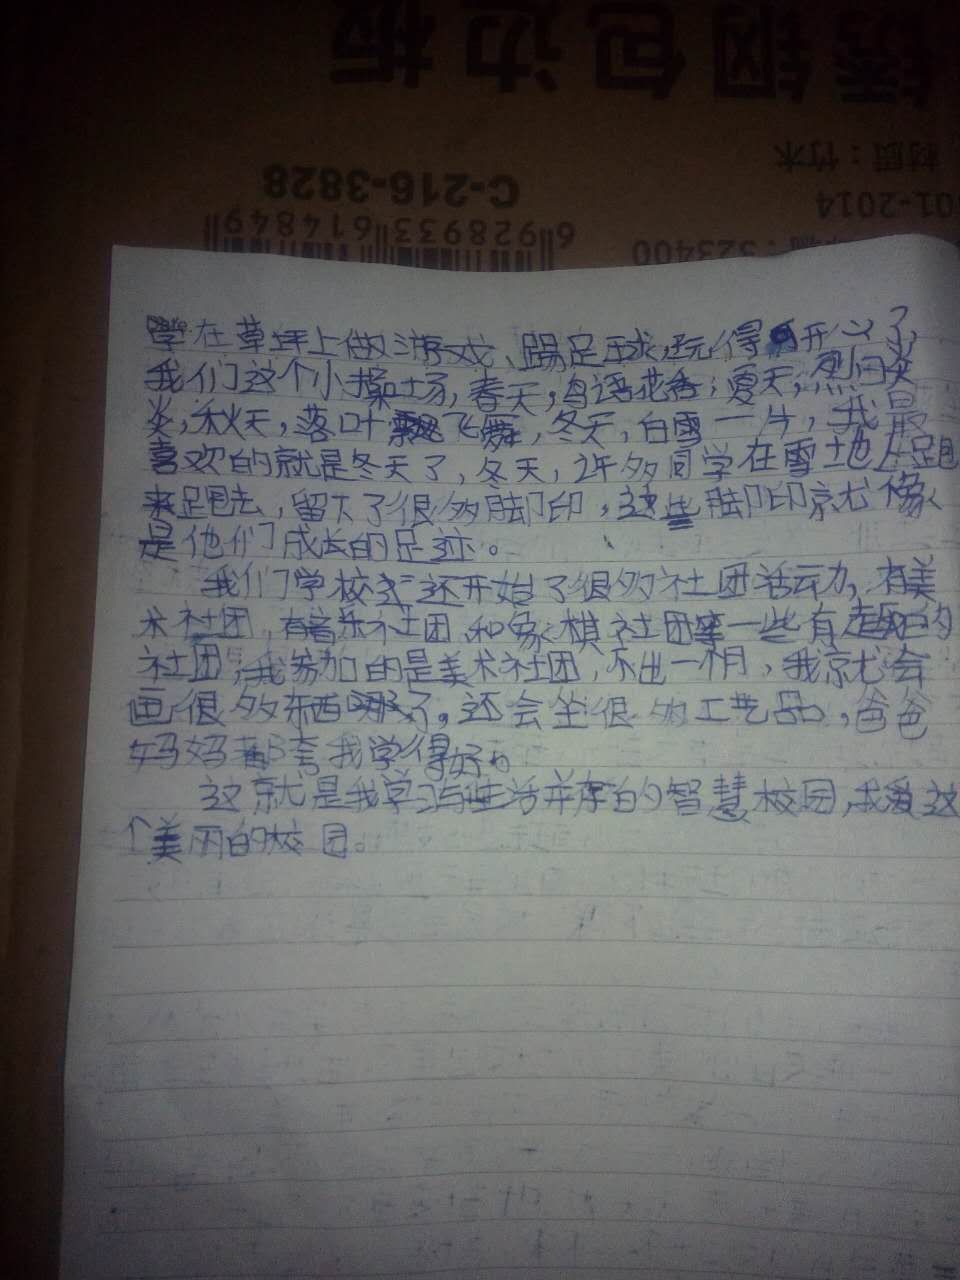 锈钢包边板
材质：竹木
01-2014
C-216-3828
323400
6 928933 614849
学在草坪上做游戏、踢足球，玩得开心了，
我们这个小操场，春天，鸟语花香；夏天，烈日炎
炎，秋天，落叶飘飞舞，冬天，白雪一片，我最
喜欢的就是冬天了，冬天，许多同学在雪地上跑
来跑去，留下了很多脚印，这些脚印就像
是他们成长的足迹。
我们学校还开始了很多社团活动，有美
术社团，有音乐社团，和象棋社团等一些有趣的
社团，我参加的是美术社团，不出一个月，我就会
画很多东西了。还会坐很多工艺品，爸爸
妈妈都夸我学得好。
这就是我学习与生活并存的智慧校园，我爱这
个美丽的校园。